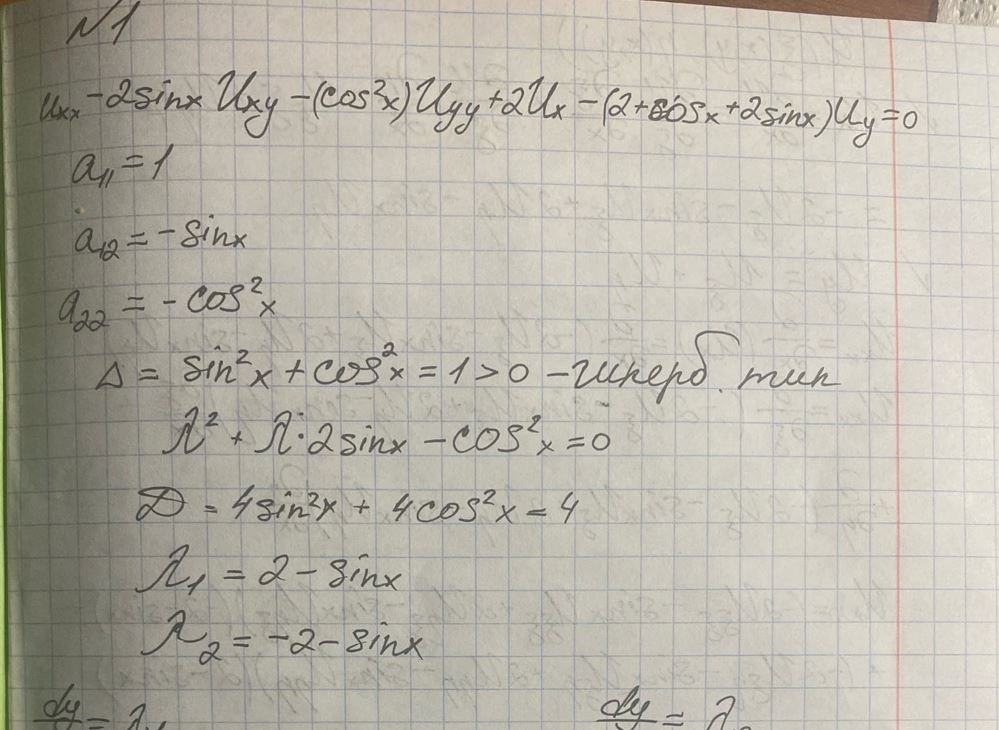 N1
Uxx - 2sinx Uxy - (cos²x) Uyy + 2Ux - (2+cosx+2sinx)Uy = 0
a₁₁ = 1
a₁₂ = -sinx
a₂₂ = -cos²x
Δ = sin²x + cos²x = 1 > 0 - гиперб. тип
λ² + λ·2sinx - cos²x = 0
D = 4sin²x + 4cos²x = 4
λ₁ = 2 - sinx
λ₂ = -2 - sinx
dy = λ dy = λ